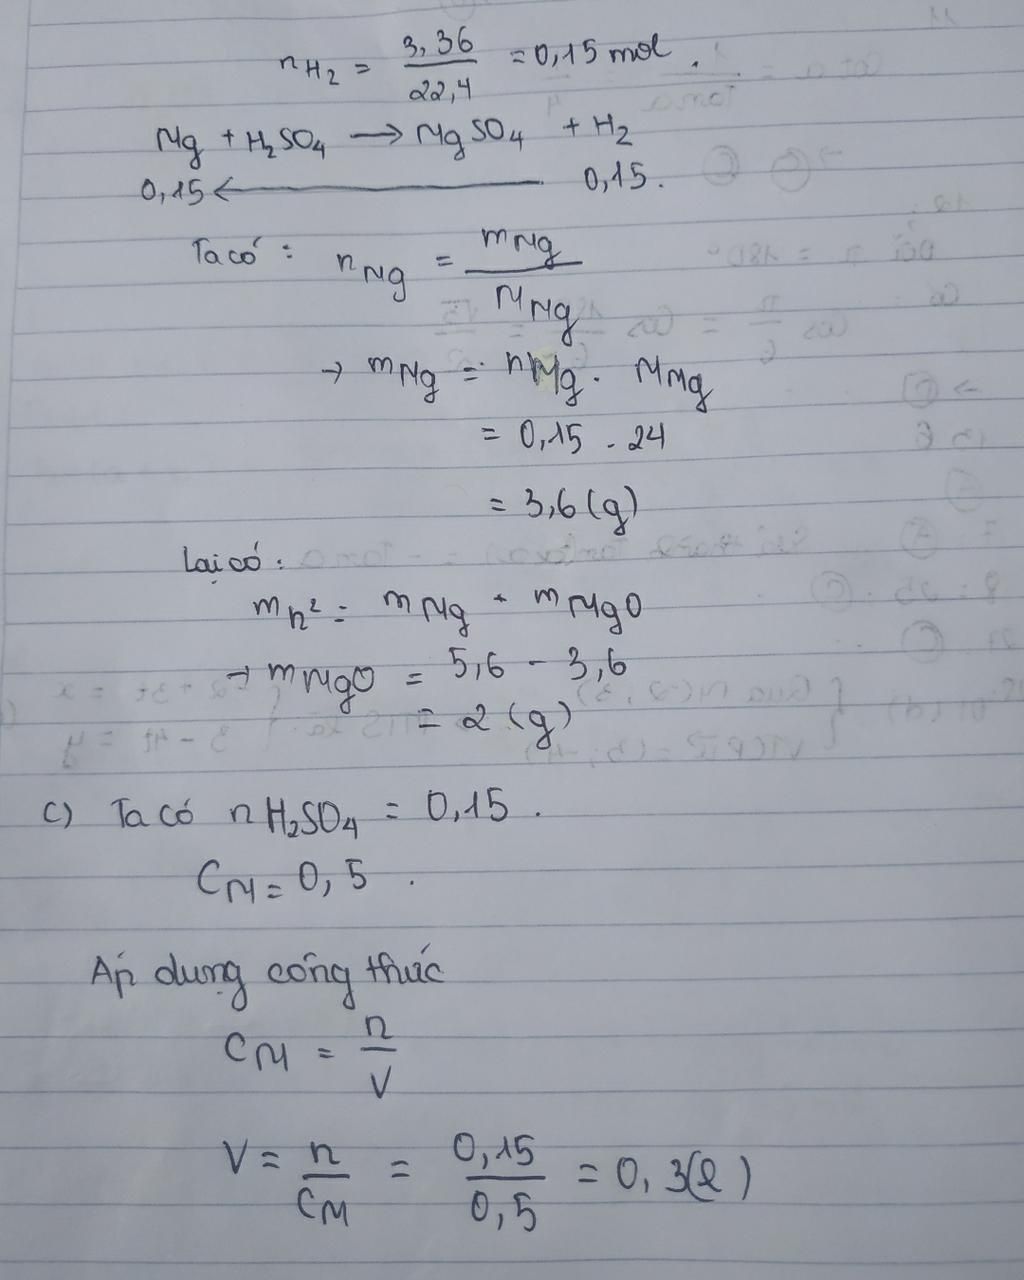 nH₂ = 3,36/22,4 = 0,15 mol.
Mg + H₂SO₄ → MgSO₄ + H₂
0,15 ← 0,15.
Ta có : nMg = mMg/MMg
→ mMg = nMg . MMg
= 0,15 . 24
= 3,6 (g)
Lại có :
mh² = mMg + mMgO
→ mMgO = 5,6 - 3,6
= 2 (g)
c) Ta có nH₂SO₄ = 0,15 .
CM = 0,5 .
Áp dụng công thức
CM = n/V
V = n/CM = 0,15/0,5 = 0,3(l)